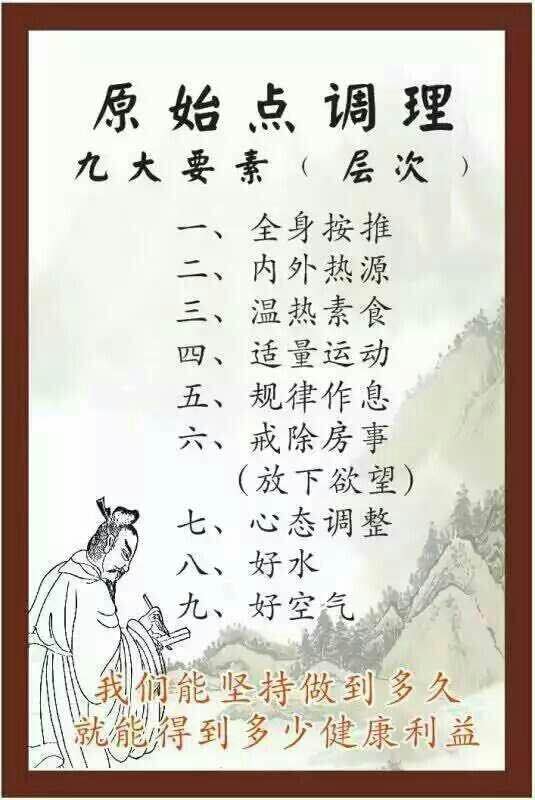 原始点调理
九大要素（层次）
一、全身按推
二、内外热源
三、温热素食
四、适量运动
五、规律作息
六、戒除房事
（放下欲望）
七、心态调整
八、好水
九、好空气
我们能坚持做到多久
就能得到多少健康利益